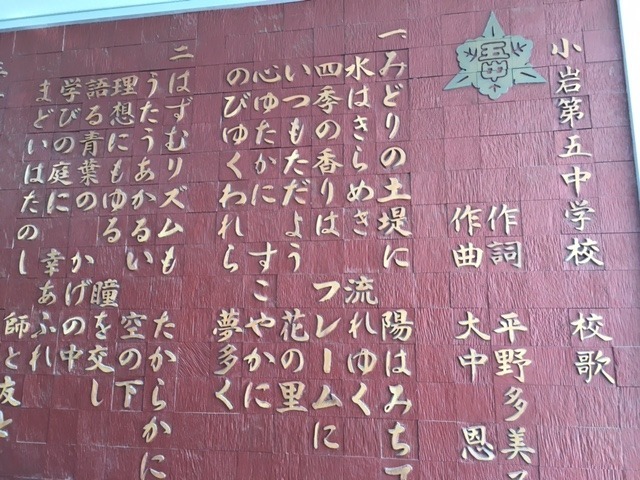 小岩第五中学校 校歌
作詞 平野多美
作曲 大中 恩
一、みどりの土堤に 陽はみちて
水はきらめき 流れゆく
四季の香りは フレームに
いつもただよう 花の里
心ゆたかに すこやかに
のびゆくわれら 夢多く
二 はずむリズムも たからかに
うたうあかるい 空の下
理想にもゆる 瞳を交し
語る青葉の かげの中
学びの庭に 幸あふれ
まどいはたのし 師と友と